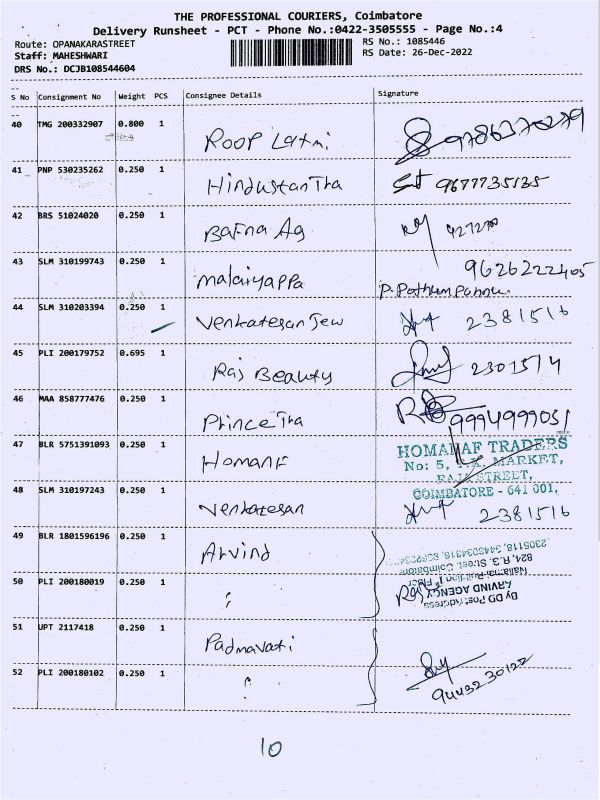 THE PROFESSIONAL COURIERS, Coimbatore
Delivery Runsheet - PCT - Phone No.:0422-3505555 - Page No.:4
Route: OPANAKARASTREET
RS No.: 1085446
Staff: MAHESHWARI
RS Date: 26-Dec-2022
DRS No.: DCJB108544604
S No Consignment No Weight PCS Consignee Details Signature
40 TMG 200332907 0.800 1 Roop Latni
41 PNP 530235262 0.250 1 Hindustan Tra 9677735135
42 BRS 51024020 0.250 1 Bafna Ag
43 SLM 310199743 0.250 1 Malaiyappa 9626222405
P. Pothum Ponnu.
44 SLM 310203394 0.250 1 Venkatesan Jew 2381516
45 PLI 200179752 0.695 1 Raj Beauty 2301514
46 MAA 858777476 0.250 1 Prince Tra 9994999051
47 BLR 5751391093 0.250 1 Homanf
HOMANAF TRADERS
No: 5, T.K. MARKET,
RAJA STREET,
COIMBATORE - 641 001.
48 SLM 310197243 0.250 1 Venkatesan 2381516
49 BLR 1801596196 0.250 1 Arvind
50 PLI 200180019 0.250 1 "
By DG Post Address
ARVIND AGENCY
824, R.G. Street, Coimbatore
51 UPT 2117418 0.250 1 Padmavati
52 PLI 200180102 0.250 1 "
9443230122
10